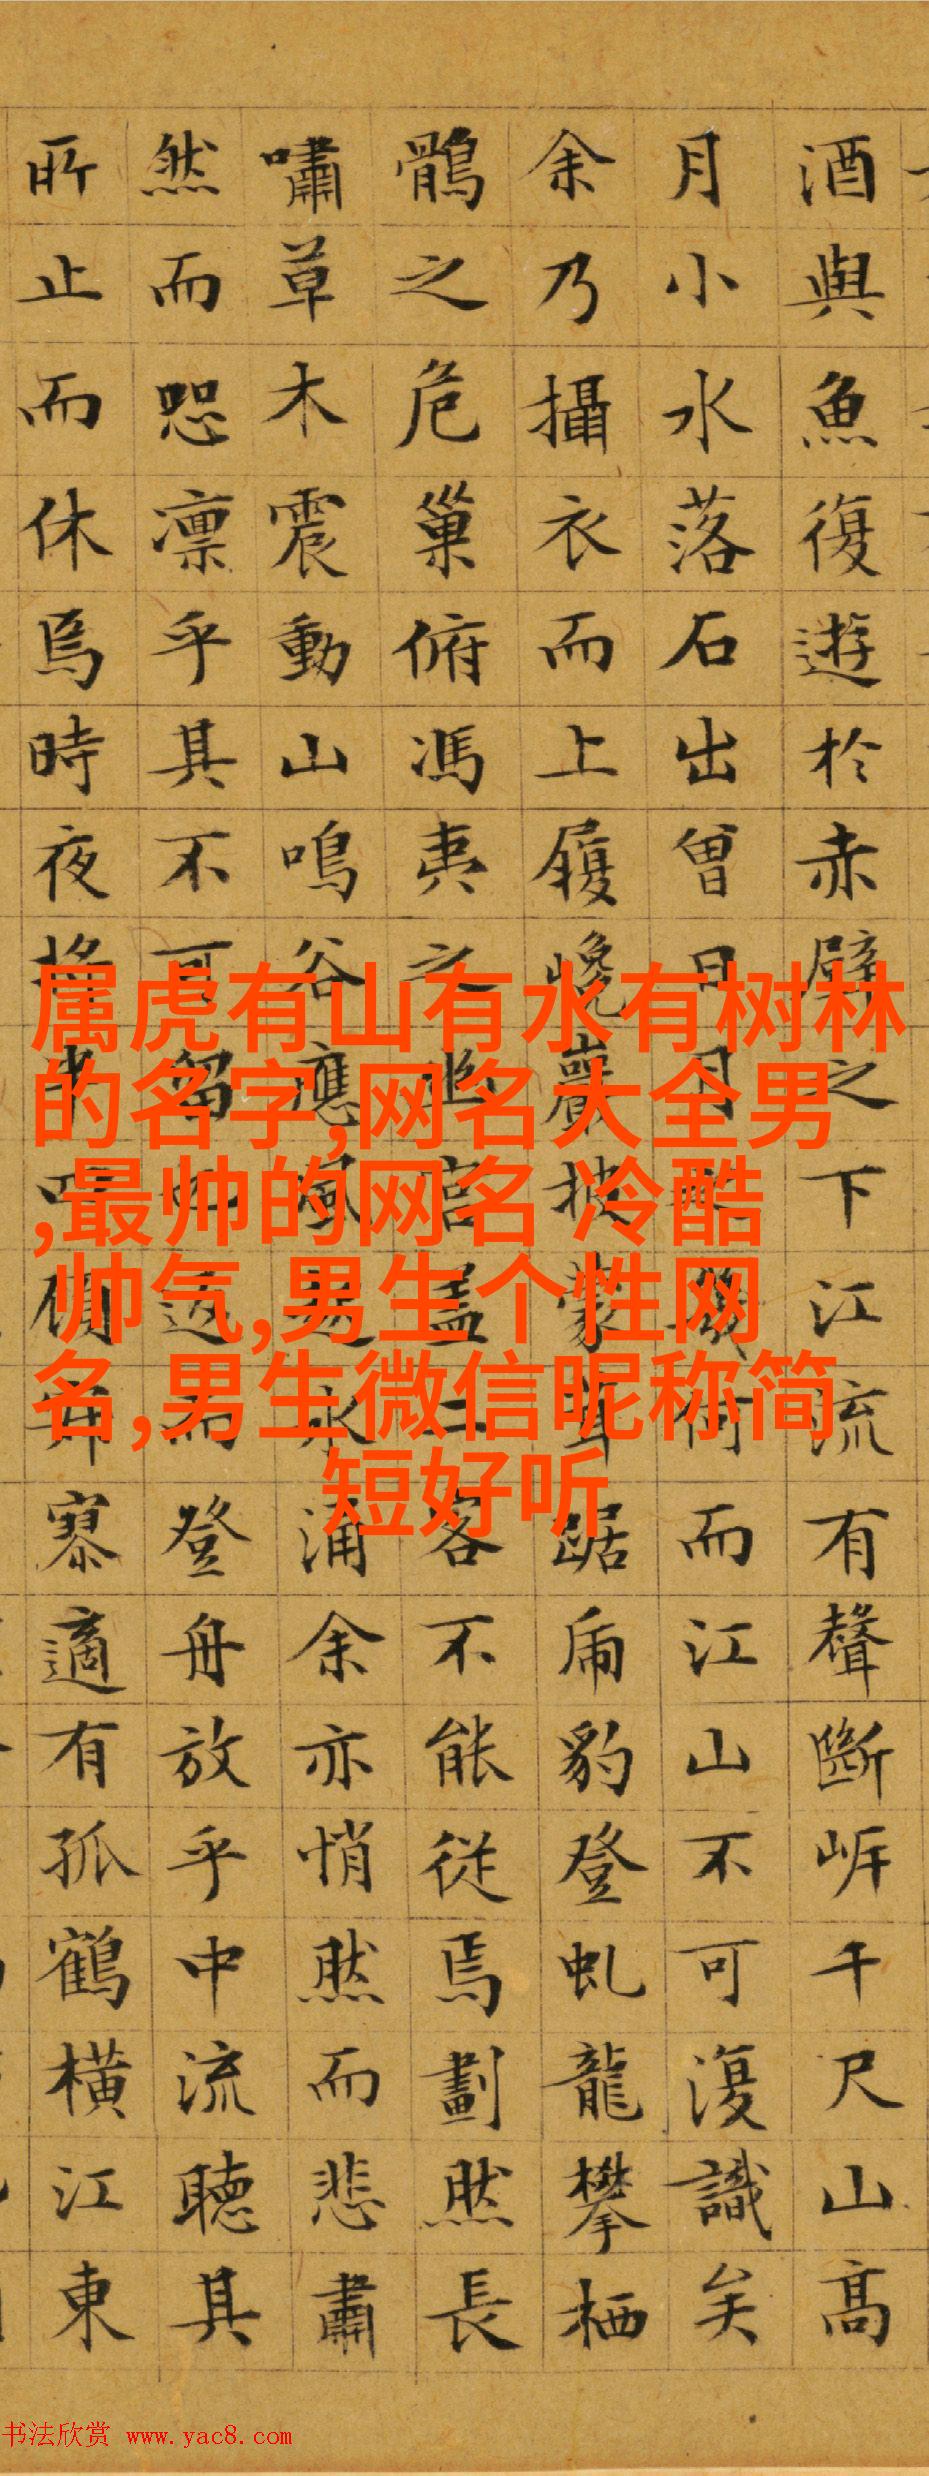 酒與魚復遊於赤壁之下江流有聲斷岸千尺山高
月小水落石出曾日月之幾何而江山不可復識矣
余乃攝衣而上履巉巖披蒙茸踞虎豹登虬龍攀栖
鶻之危巢俯馮夷之幽宮蓋二客不能從焉劃然長
嘯草木震動山鳴谷應風起水涌余亦悄然而悲肅
然而恐凛乎其不可留也返而登舟放乎中流聽其
所止而休焉時夜將半四顧寂寥適有孤鶴橫江東
属虎有山有水有树林
的名字,网名大全男
,最帅的网名 冷酷
帅气,男生个性网
名,男生微信昵称简
短好听
书法欣赏 www.yac8.com